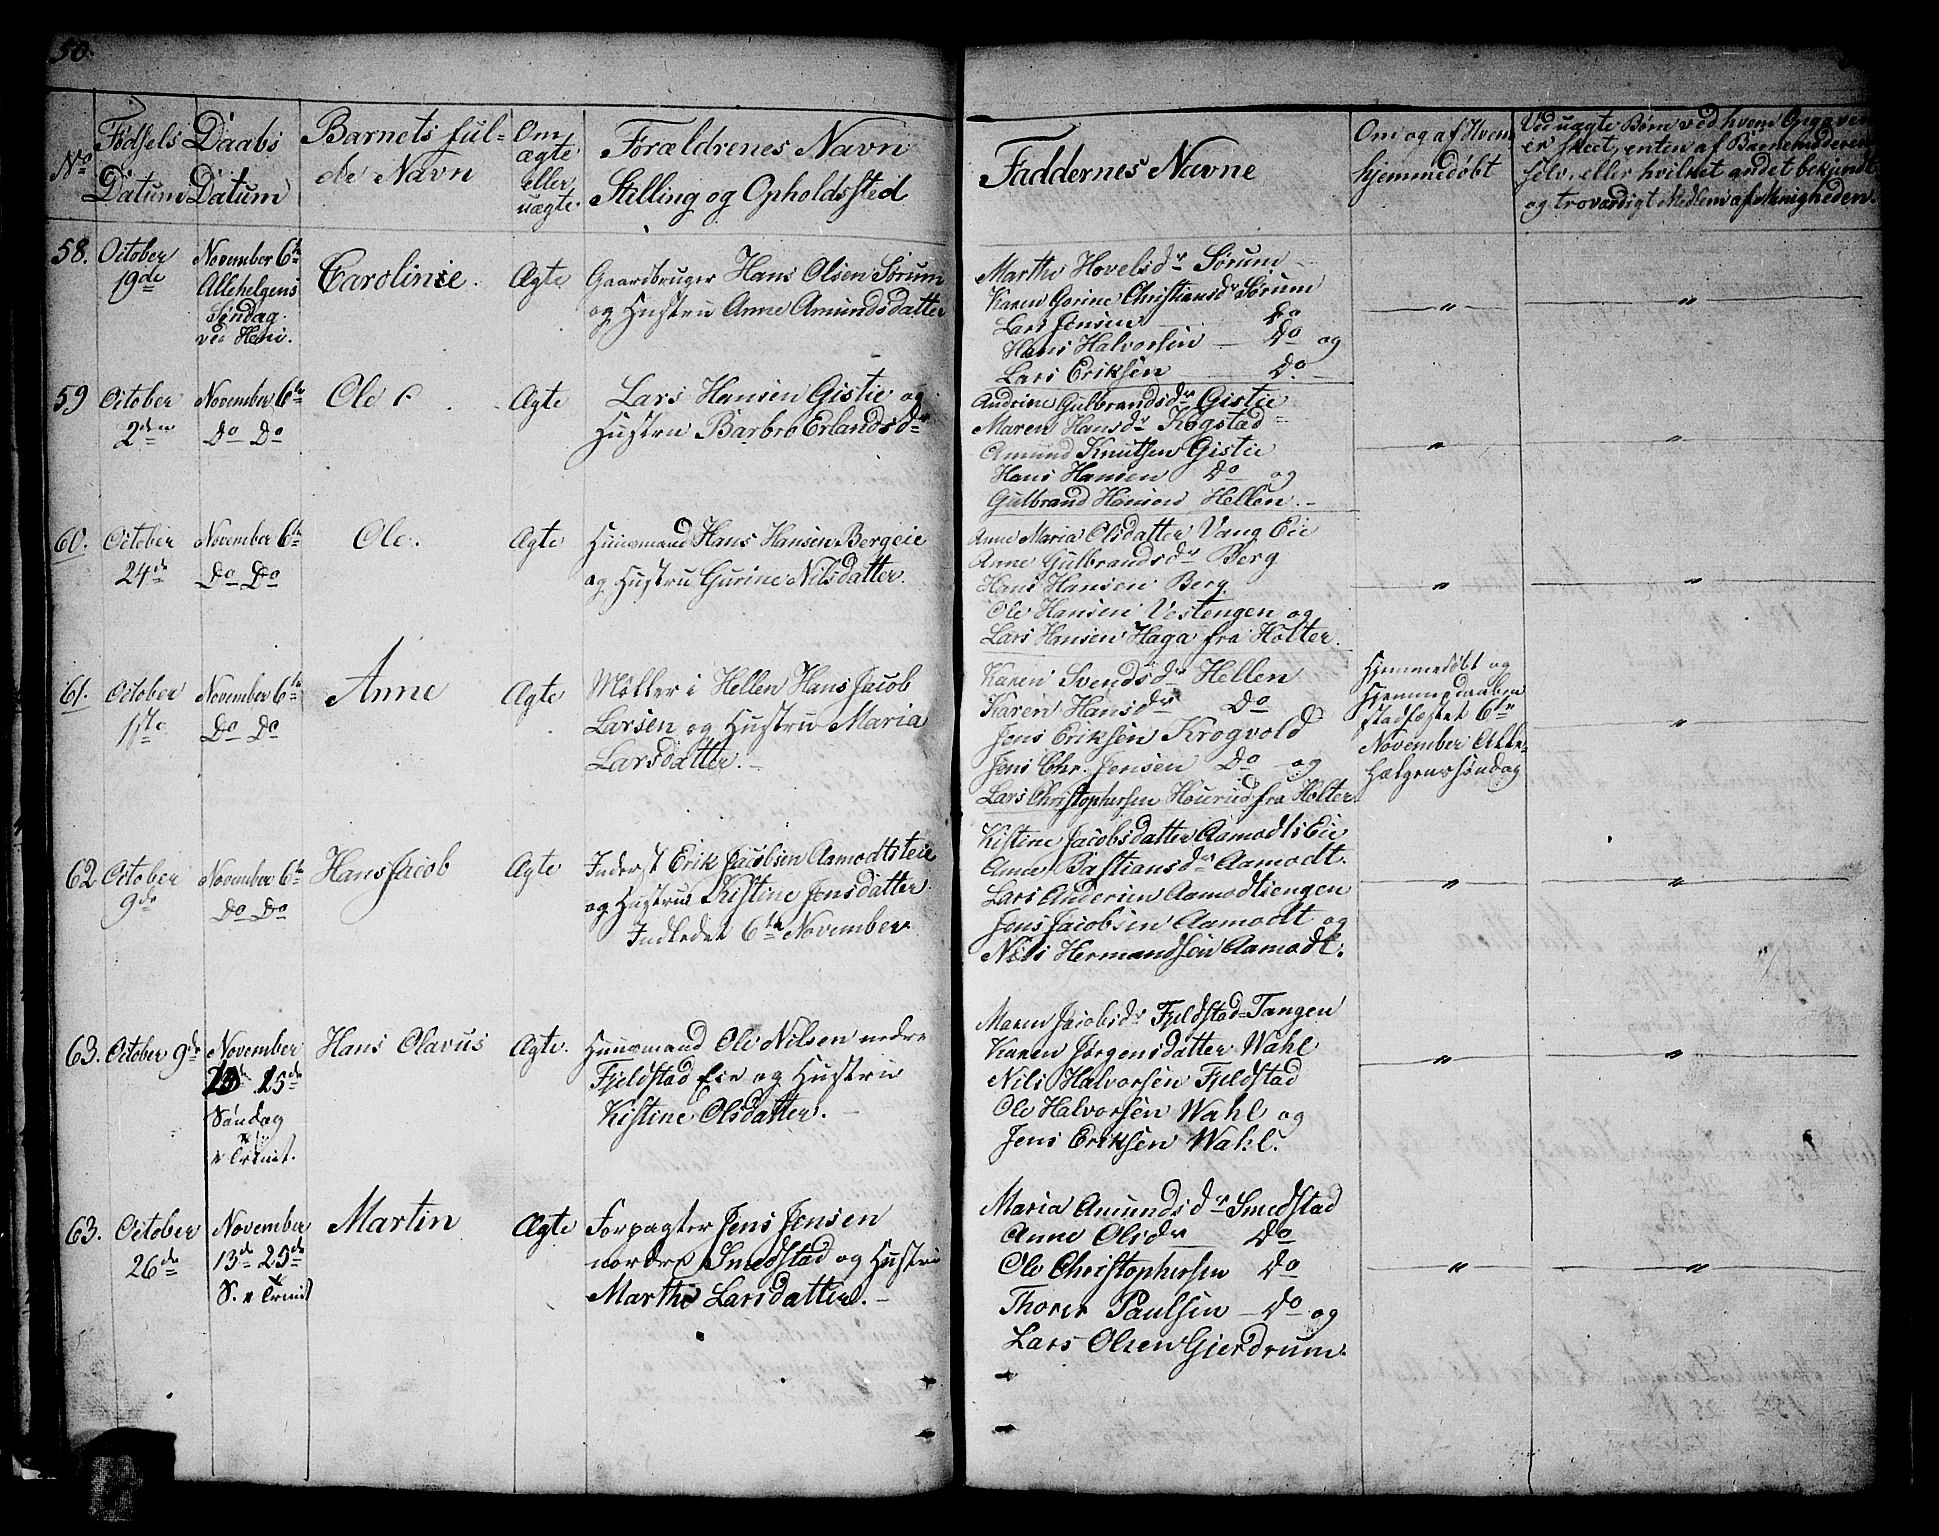 50.
No
Fødsels Datum
Daabs Datum
Barnets fulde Navn
Om ægte eller uægte.
Forældrenes Navn
Stilling og Opholdssted
Faddernes Navne
Om og af Hvem
hjemmedøbt
Ved uægte Børn ved hvem Opgaven
er skeet, enten af Barnemoderen
selv, eller hvilket andet bekjendt
og troværdigt Medlem af Menigheden.
58.
October
19de
November 6te
Allehelgens
Søndag
Carolinie.
Ægte
Gaardbruger Hans Olsen Sörum
og Hustru Anne Amundsdatter
Marthe Hovelsdr Sörum
Karen Gorine Christiansdr Sörum
Lars Jensen Do
Hans Halvorsen Do og
Lars Eriksen Do
"
"
59
October
2den
November 6te
Do Do
Ole
Ægte
Lars Hansen Gistie og
Hustru Barbro Erlandsdr
Andrine Gulbrandsdr Gistie
Maren Hansdr Kogstad
Amund Knutsen Gistie
Hans Hansen Do og
Gulbrand Hansen Hellen.
"
"
60.
October
24de
November 6te
Do Do
Ole.
Ægte
Huusmand Hans Hansen Bergeie
og Hustru Gurine Nilsdatter.
Anne Maria Olsdatter Vang Eie
Anne Gulbrandsdr Berg
Hans Hansen Berg
Ole Hansen Vestengen og
Lars Hansen Haga fra Holter.
"
"
61.
October
1ste
November 6te
Do Do
Anne
Ægte
Møller i Hellen Hans Jacob
Larsen og Hustru Maria
Larsdatter.
Karen Svendsdr Hellen
Karen Hansdr Do
Jens Eriksen Krogvold
Jens Chr. Jensen Do og
Lars Christophersen Hourud fra Holter
Hjemmedøbt og
Hjemmedaaben
stadfæstet 6te
November Alle-
hælgenssöndag
"
62
October
9de
November 6te
Do Do
Hans Jacob
Ægte
Inderst Erik Jacobsen Aamodtseie
og Hustru Kistine Jensdatter
Indledet 6te November
Kistine Jacobsdatter Aamodts Eie
Anne Bastiansdr Aamodt.
Lars Andersen Aamodtsengen
Jens Jacobsen Aamodt og
Nils Hermandsen Aamodt.
"
"
63.
October 9de
November
25de
Søndag
e Trinit.
Hans Olavus
Ægte.
Huusmand Ole Nilsen nedre
Fjeldstad Eie og Hustru
Kistine Olsdatter.
Maren Jacobsdr Fjeldstad-Tangen
Karen Jørgensdatter Wahl
Nils Halvorsen Fjeldstad
Ole Halvorsen Wahl og
Jens Eriksen Wahl.
"
"
63.
October
26de
November
13de 25de
S. e Trinit
Martin
Ægte
Forpagter Jens Jensen
nordre Smedstad og Hustru
Marthe Larsdatter.
Maria Amundsdr Smedstad
Anne Olsdr Do
Ole Christophersen Do
Thorer Paulsen Do og
Lars Olsen Gjerdrum.
"
"